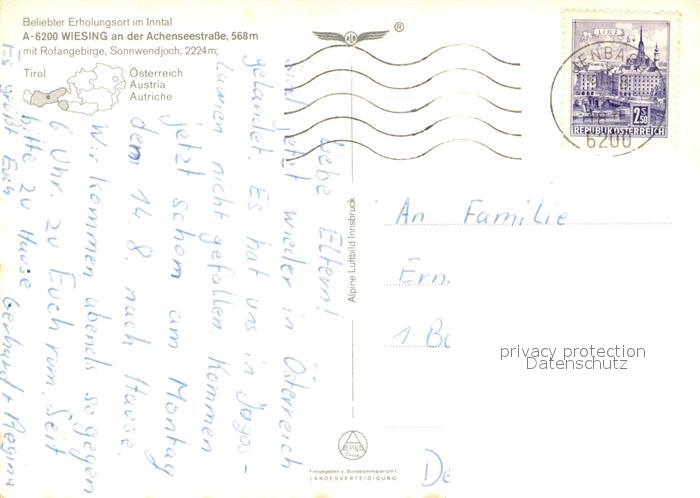 Beliebter Erholungsort im Inntal
A-6200 WIESING an der Achenseestraße, 568m
mit Rofangebirge, Sonnwendjoch, 2224m;
Tirol
Österreich
Austria
Autriche
®
LINZ
2.50
S
REPUBLIK ÖSTERREICH
6200
Liebe Eltern!
Sind jetzt wieder in Österreich
gelandet. Es hat uns in Jugos-
lawien nicht gefallen. Kommen
jetzt schon am Montag
dem 14. 8. nach Hause.
Wir kommen abends so gegen
6 Uhr. zu Euch rum. Seit
bitte zu Hause
Es grüßt Euch
Gerhard + Regina
Alpine Luftbild Innsbruck
An Familie
Ern
1 Be
De
privacy protection
Datenschutz
ALPINE
Freigegeben v. Bundesministerium f.
LANDESVERTEIDIGUNG